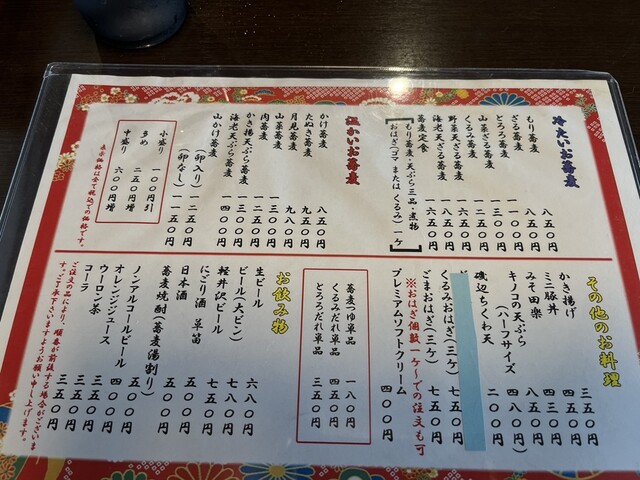 冷たいお蕎麦
もり蕎麦 八五〇円
ざる蕎麦 八五〇円
とろろ蕎麦 一一〇〇円
山菜ざる蕎麦
くるみ蕎麦
野菜天ざる蕎麦
海老天ざる蕎麦
蕎麦定食
もり蕎麦・天ぷら三品・煮物
おはぎ(ゴマ または くるみ)一ケ
温かいお蕎麦
かけ蕎麦 八五〇円
たぬき蕎麦 九五〇円
月見蕎麦 九八〇円
山菜蕎麦
肉蕎麦 一三〇〇円
かき揚天ぷら蕎麦 一二五〇円
海老天ぷら蕎麦 一四〇〇円
山かけ蕎麦
(卵入り) 一二五〇円
(卵なし) 一一五〇円
小盛り 一〇〇円引
多め 二五〇円増
中盛り 六〇〇円増
表示価格は全て税込での価格です。
その他のお料理
かき揚げ 三五〇円
ミニ豚丼 四五〇円
みそ田楽 四三〇円
キノコの天ぷら 八五〇円
(ハーフサイズ 四八〇円)
磯辺ちくわ天 二〇〇円
くるみおはぎ(三ケ) 七五〇円
ごまおはぎ(三ケ) 七五〇円
※おはぎ個数一ケ〜での注文も可
プレミアムソフトクリーム 四〇〇円
蕎麦つゆ単品 一八〇円
くるみだれ単品 四五〇円
とろろだれ単品 三五〇円
お飲み物
生ビール 六八〇円
ビール(大ビン) 七八〇円
軽井沢ビール 七五〇円
にごり酒 草笛 七五〇円
日本酒 五〇〇円
蕎麦焼酎(蕎麦湯割り) 五五〇円
ノンアルコールビール 五〇〇円
オレンジジュース 四〇〇円
ウーロン茶 三五〇円
コーラ 三五〇円
ご注文の品により、順番が前後する場合がございま
す。ご了承下さいますようお願い申し上げます。